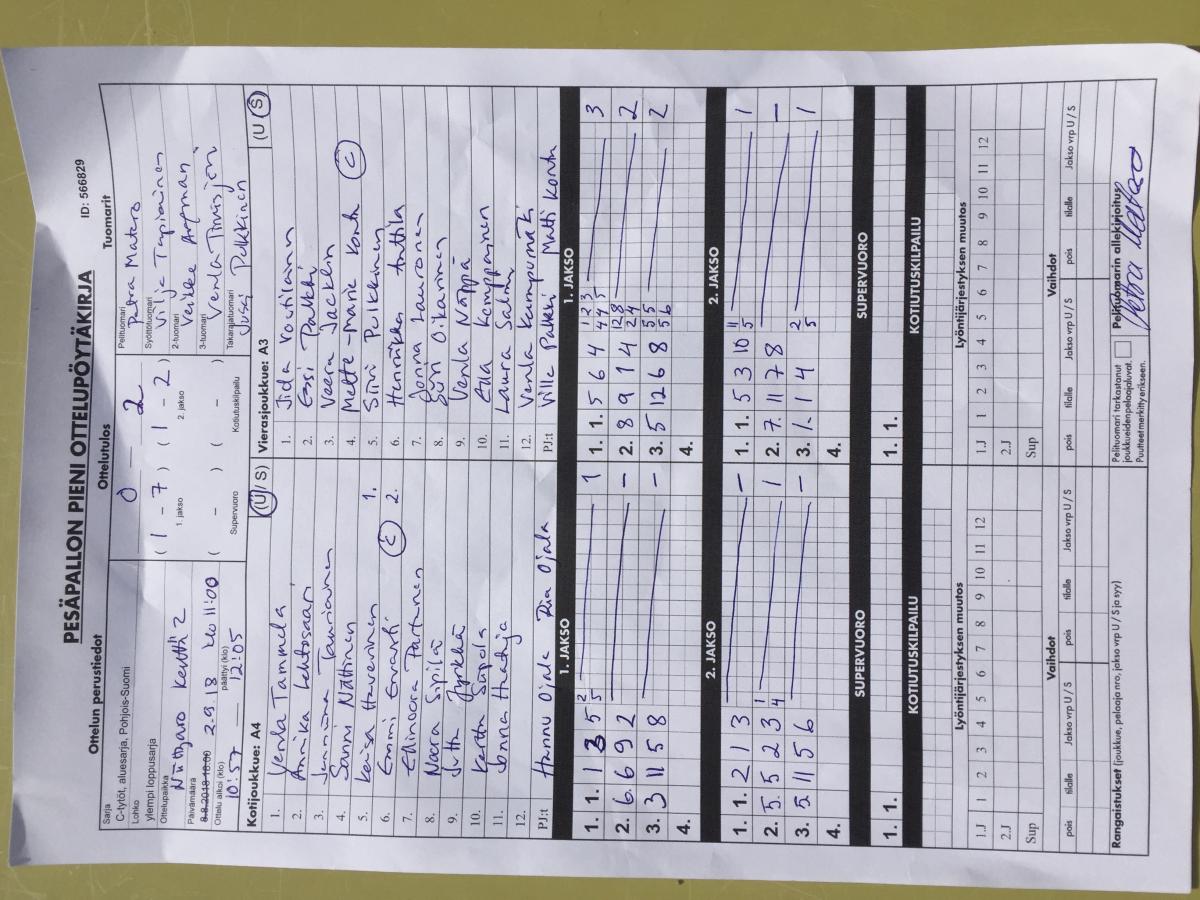 PESÄPALLON PIENI OTTELUPÖYTÄKIRJA
ID: 566829
Ottelun perustiedot
Ottelutulos
Tuomarit
Sarja
C-tytöt, aluesarja, Pohjois-Suomi
Lohko
ylempi loppusarja
Ottelupaikka
kenttä 2
Päivämäärä
8.8.2018 18:00 2.9.18 klo 11:00
Ottelu alkoi (klo)
10:57
päättyi (klo)
12:05
0 – 2
( 1 – 7 ) ( 1 – 2 )
1. jakso 2. jakso
( – ) ( – )
Supervuoro Kotiutuskilpailu
Pelituomari
Petra Matero
Syöttötuomari
Vilja Tapiainen
2-tuomari
Veikka
3-tuomari
Venla
Takarajatuomari
Jussi Pulkkinen
Kotijoukkue: A4 (U / S)
1. Venla Tammela
2. Annika Lehtosaari
3. Jemmina Tauriainen
4. Sanni Nättinen
5. Kaisa Haverinen 1.
6. Emmi C 2.
7. Ellinoora Partanen
8. Noora Sipilä
9. Jutta Jyrkkä
10. Kerttu Siipola
11. Jonna Haataja
12.
PJ:t Hannu Ojala Pia Ojala
Vierasjoukkue: A3 (U S)
1. Iida Voutilainen
2. Essi Palkki
3. Veera Jacklin
4. Mette-Marie Kontu C
5. Siiri Pulkkinen
6. Henriikka Anttila
7. Jonna Lauronen
8. Siiri Oikarinen
9. Venla Näppä
10. Ella Komppinen
11. Laura Salmi
12. Venla Kumpumäki
PJ:t Ville Palkki Matti Kontu
1. JAKSO
1. 1. 1 3 5 2 5 1
2. 6. 6 9 2 –
3. 3 11 5 8 –
4.
1. JAKSO
1. 1. 5 6 4 1 2 3 4 4 5 3
2. 8 9 1 4 12 8 2 4 2
3. 5 12 6 8 5 5 5 6 2
4.
2. JAKSO
1. 1. 2 1 3 –
2. 5. 5 2 3 1 4 1
3. 5 11 5 6 –
4.
2. JAKSO
1. 1. 5 3 10 11 5 1
2. 7. 11 7 8 –
3. 1. 1 4 2 5 1
4.
SUPERVUORO
1. 1.
SUPERVUORO
1. 1.
KOTIUTUSKILPAILU
KOTIUTUSKILPAILU
Lyöntijärjestyksen muutos
1.J 1 2 3 4 5 6 7 8 9 10 11 12
2.J
Sup
Lyöntijärjestyksen muutos
1.J 1 2 3 4 5 6 7 8 9 10 11 12
2.J
Sup
Vaihdot
pois tilalle Jakso vrp U / S pois tilalle Jakso vrp U / S
Vaihdot
pois tilalle Jakso vrp U / S pois tilalle Jakso vrp U / S
Rangaistukset (joukkue, pelaaja nro, jakso vrp U / S ja syy)
Pelituomari tarkastanut
joukkueidenpelaajaluvat.
Puutteet merkitty erikseen.
Pelituomarin allekirjoitus
Petra Matero